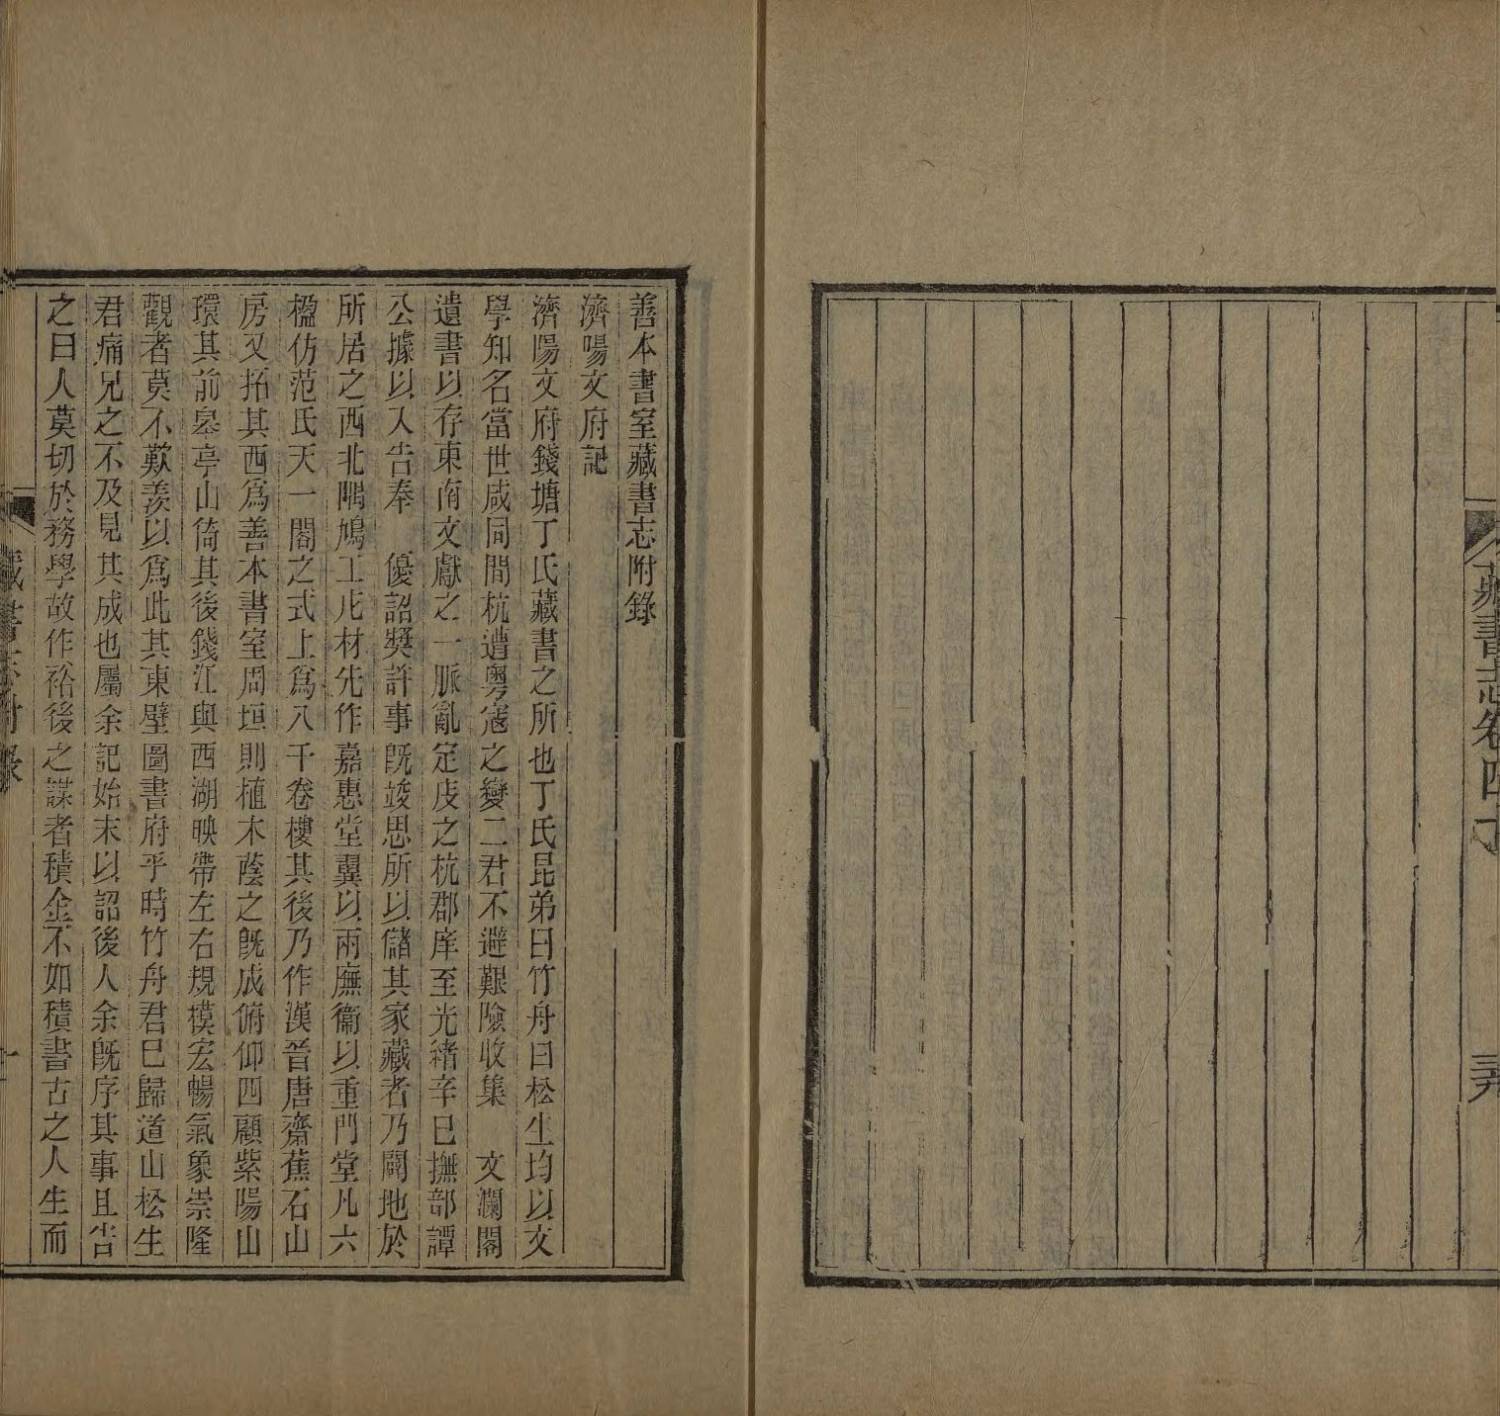 藏書志卷四十
三九
善本書室藏書志附錄
濟陽文府記
濟陽文府錢塘丁氏藏書之所也丁氏昆弟曰竹舟曰松生均以文
學知名當世咸同間杭遭粵寇之變二君不避艱險收集　文瀾閣
遺書以存東南文獻之一脈亂定庋之杭郡庠至光緒辛巳撫部譚
公據以入告奉　優詔獎許事既竣思所以儲其家藏者乃闢地於
所居之西北隅鳩工庀材先作嘉惠堂翼以兩廡衞以重門堂凡六
楹仿范氏天一閣之式上爲八千卷樓其後乃作漢晉唐齋蕉石山
房又拓其西爲善本書室周垣則植木蔭之既成俯仰四顧紫陽山
環其前皋亭山倚其後錢江與西湖映帶左右規模宏暢氣象崇隆
觀者莫不歎羨以爲此其東壁圖書府乎時竹舟君已歸道山松生
君痛兄之不及見其成也屬余記始末以詔後人余既序其事且告
之曰人莫切於務學故作裕後之謀者積金不如積書古之人生而
藏書志附錄
一